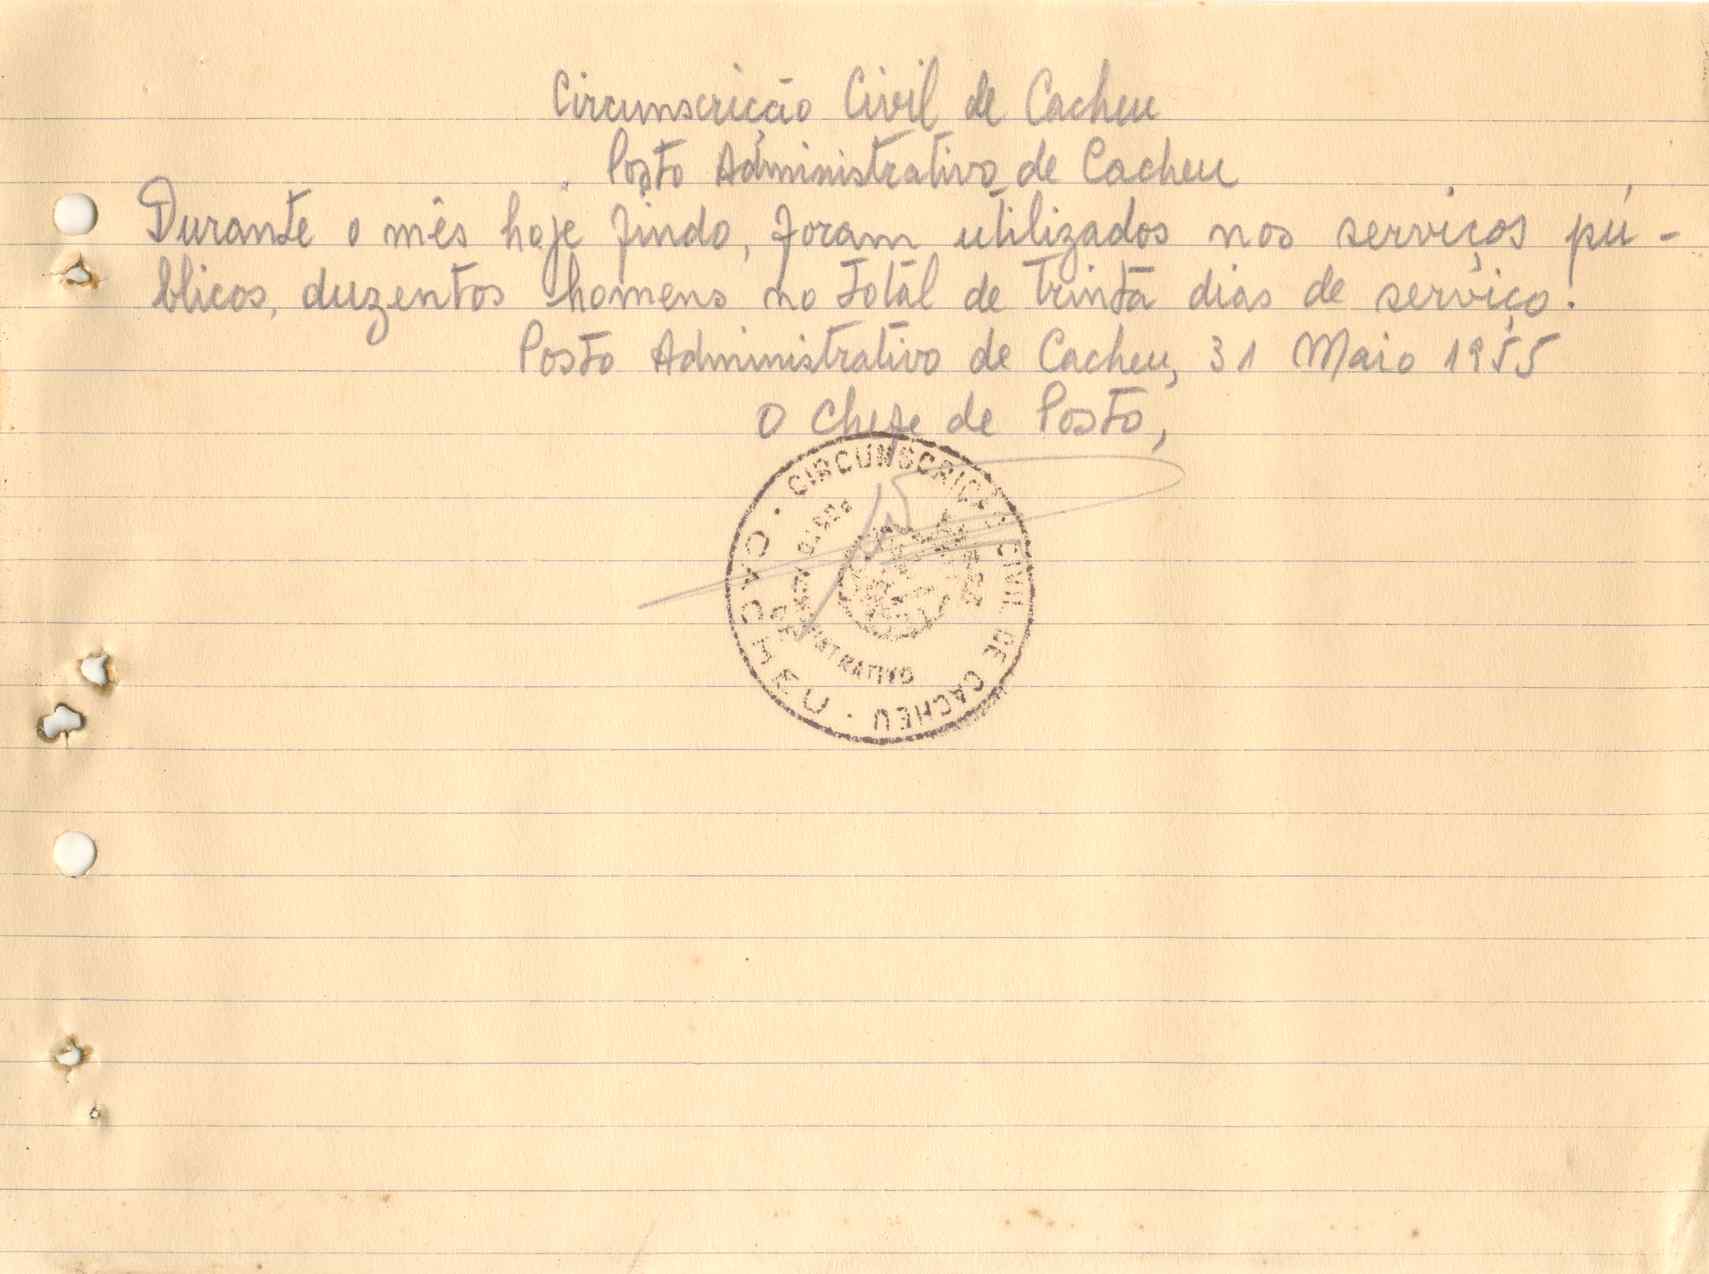 Circunscrição Civil de Cacheu
Posto Administrativo de Cacheu
Durante o mês hoje findo, foram utilizados nos serviços pú-
blicos, duzentos homens no total de trinta dias de serviço.
Posto Administrativo de Cacheu, 31 Maio 1955
O Chefe de Posto,
CIRCUNSCRIÇÃO CIVIL DE CACHEU · CACHEU ·
POSTO ADMINISTRATIVO